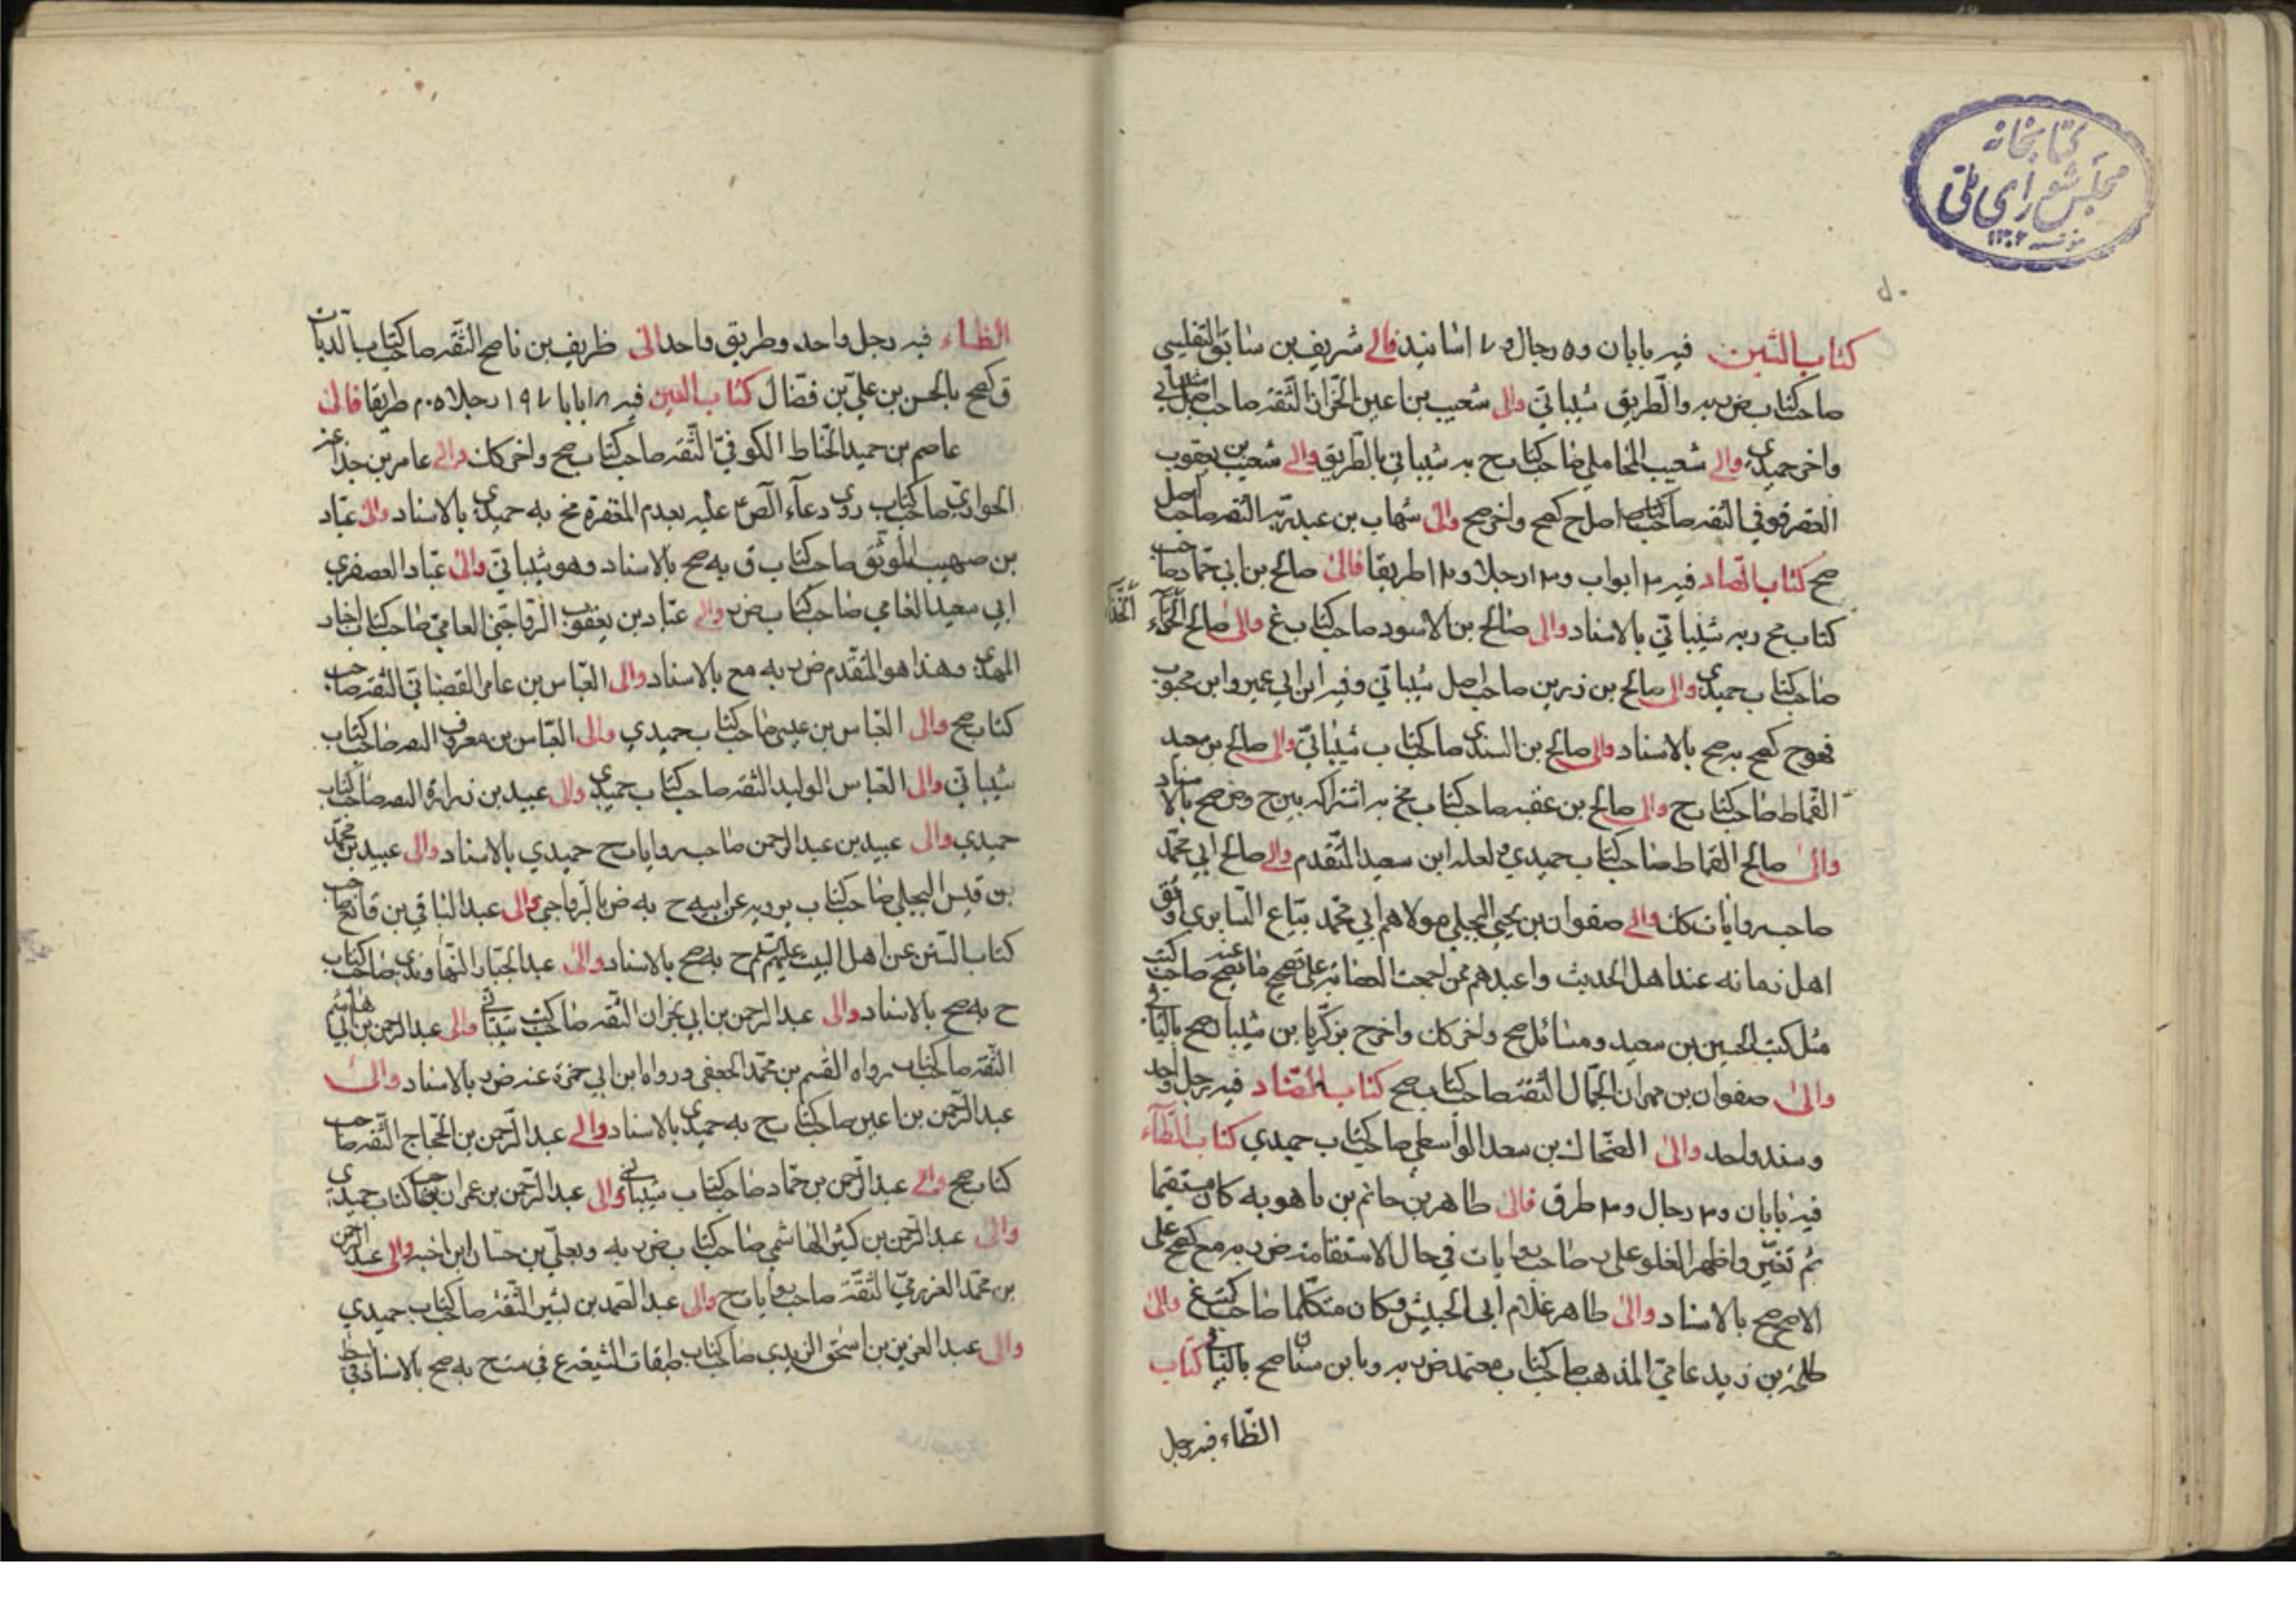 كتابخانه
مجلس شورای ملی
كتاب الشين فيه بابان و٥ رجال و٧ اسانيد فالى شريف بن سابق التفليسي
صاحب كتاب ض ربه والطريق شيباني والى شعيب بن اعين الثقة صاحب اصل شيباني
واخر حميدي والى شعيب المحاملي صاحب كتاب ح به شيباني بالطريق والى شعيب بن يعقوب
العقرقوفي الثقه صاحب اصل ح كصح واخر صح والى شهاب بن عبد ربه الثقه صاحب اصل
صح كتاب الصاد فيه ابواب رجلا و طريقا فالى صالح بن ابي حماد صاحب
كتاب مح ربه شيباني بالاسناد والى صالح بن الاسود صاحب كتاب غ والى صالح الحذاء
الحذاء
صاحب كتاب حميدي والى صالح بن رزين صاحب اصل شيباني وفيه ابن ابي عمير وابن محبوب
فهو ح كصح به صح بالاسناد والى صالح بن السندي صاحب كتاب شيباني والى صالح بن سعيد
القماط صاحب كتاب ح والى صالح بن عقبه صاحب كتاب مخ به اشتراكه بين ح وض صح بالاسناد
والى صالح القماط صاحب كتاب حميدي ولعله ابن سعيد المتقدم والى صالح ابي محمد
صاحب روايات كك والى صفوان بن يحيى البجلي مولاهم ابي محمد بياع السابري اوثق
اهل زمانه عند اهل الحديث واعبدهم ممن اجمعت العصابة على تصحيح ما يصح عنه صاحب كتب
مثل كتب الحسين بن سعيد ومسائل صح واخر كك واخر ح بزكريا بن شيبان صح بالثاني
والى صفوان بن مهران الجمال الثقة صاحب كتاب صح كتاب الضاد فيه رجل واحد
وسند واحد والى الضحاك بن سعد الواسطي صاحب كتاب حميدي كتاب الطاء
فيه بابان و٣ رجال و٣ طرق فالى طاهر بن حاتم بن ماهويه كان مستقيما
ثم تغير واظهر الغلو صاحب روايات في حال الاستقامة ض ربه مع كصح على
الاصح صح بالاسناد والى طاهر غلام ابي الجيش وكان متكلما صاحب كتب غ والى
طلحة بن زيد عامي المذهب صاحب كتاب معتمد ض ربه وبابن سنان صح بالثاني كتاب
الظاء فيه رجل
الظاء فيه رجل واحد وطريق واحد الى ظريف بن ناصح الثقه صاحب كتاب الديات
ق كصح بالحسن بن علي بن فضال كتاب العين فيه ١٨ بابا ١٩٧ رجلا طريقا فالى
عاصم بن حميد الحناط الكوفي الثقه صاحب كتاب صح واخر كك والى عامر بن جذاعة
صاحب كتاب روى دعاء الص عليه بعدم المغفرة مخ به حميدي بالاسناد والى عباد
بن صهيب الموثق صاحب كتاب ق به صح بالاسناد وهو شيباني والى عباد العصفري
ابي سعيد العامي صاحب كتاب ض ر والى عباد بن يعقوب الرواجني العامي صاحب كتاب اخبار
المهدي وهذا هو المتقدم ض ر به مع بالاسناد والى العباس بن عامر القصباني الثقه صاحب
كتاب صح والى العباس بن عيسى صاحب كتاب حميدي والى العباس بن معروف الثقه صاحب كتاب
شيباني والى العباس الوليد الثقه صاحب كتاب حميدي والى عبيد بن زرارة الثقه صاحب كتاب
حميدي والى عبيد بن عبد الرحمن صاحب روايات ح حميدي بالاسناد والى عبيد بن محمد
بن قيس البجلي صاحب كتاب يرويه عن ابيه ح به ض بالرواجني والى عبد الباقي بن قانع صاحب
كتاب السنن عن اهل البيت عليهم السلام ح به صح بالاسناد والى عبد الجبار النهاوندي صاحب كتاب
ح به صح بالاسناد والى عبد الرحمن بن ابي نجران الثقه صاحب كتب شيباني والى عبد الرحمن بن ابي هاشم
الثقه صاحب كتاب رواه القسم بن محمد الجعفي ورواه ابن ابي حمزة عنه ض ر بالاسناد والى
عبد الرحمن بن اعين صاحب كتاب ح به حميدي بالاسناد والى عبد الرحمن بن الحجاج الثقه صاحب
كتاب صح والى عبد الرحمن بن حماد صاحب كتاب شيباني والى عبد الرحمن بن عمران صاحب كتاب حميدي
والى عبد الرحمن بن كثير الهاشمي صاحب كتاب ض ر به وبعلي بن حسان ابن اخيه والى عبد الرحمن
بن محمد العزرمي الثقة صاحب روايات ح والى عبد الصمد بن بشير الثقة صاحب كتاب حميدي
والى عبد العزيز بن اسحق الزيدي صاحب كتاب طبقات الشيعة ع في ست ح به صح بالاسناد